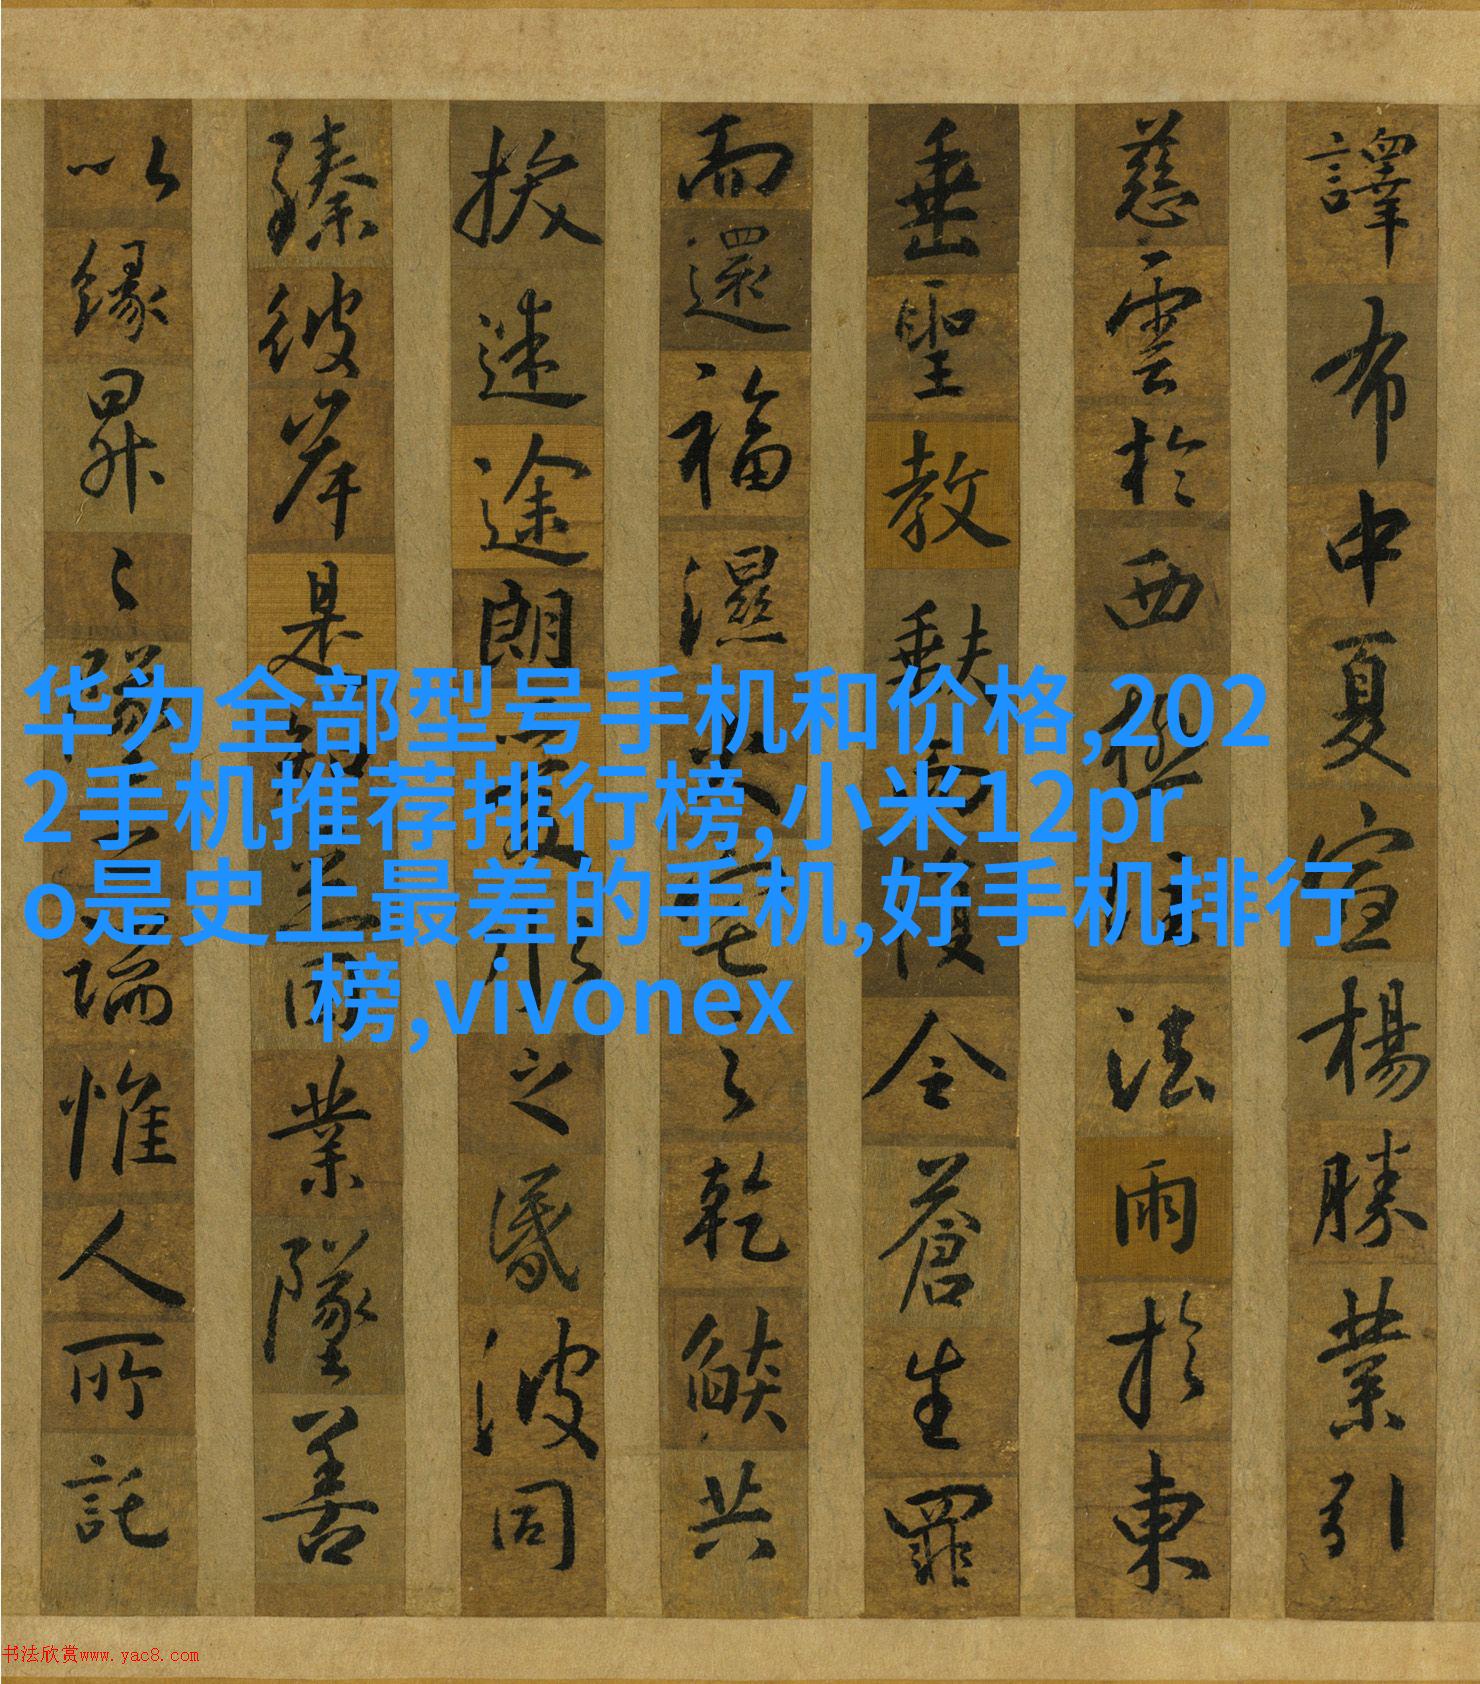 譯布中夏宣楊勝業引
慈雲於西極注法雨於東
垂聖教缺而復全蒼生罪
而還福濕火宅之乾燄共
拔迷途朗愛水之昏波同
臻彼岸是知惡因業墜善
以緣昇〻墜之端惟人所託
华为全部型号手机和价格,202
2手机推荐排行榜,小米12pr
o是史上最差的手机,好手机排行
榜,vivonex
书法欣赏www.yac8.com